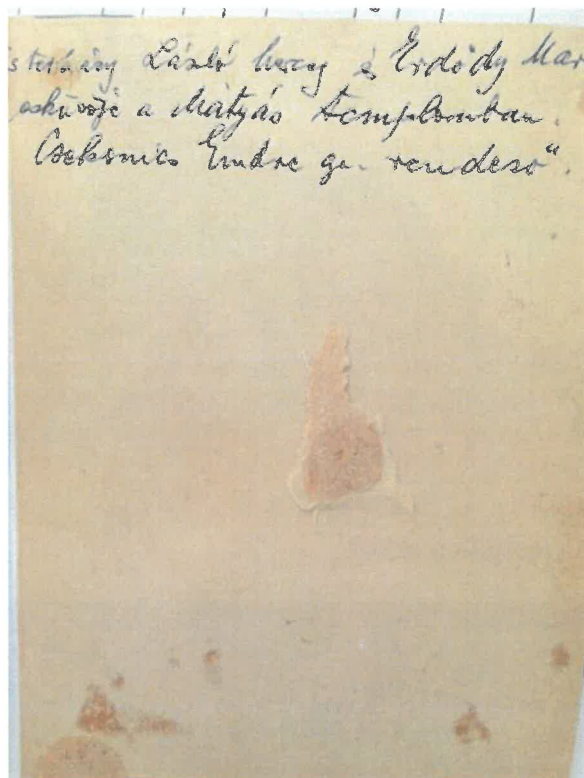 sterházy László herceg és Erdődy Mar
esküvője a Mátyás templomban.
Csekonics Endre gr. rendező".